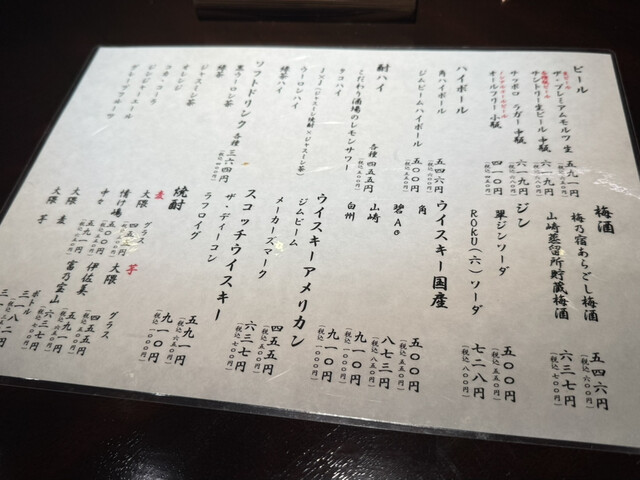 ビール
ザ・プレミアムモルツ 生 五九一円
(税込六五〇円)
サントリー生ビール 中瓶 六一九円
サッポロ ラガー 中瓶 六一九円
ノンアルコールビール
オールフリー 小瓶 四一〇円
ハイボール
角ハイボール 五四六円
ジムビームハイボール 五〇〇円
酎ハイ
こだわり酒場のレモンサワー 各種 四五五円
タコハイ
ウーロンハイ
緑茶ハイ
ソフトドリンク 各種 三六四円
黒ウーロン茶
緑茶
ジャスミン茶
オレンジ
コカ・コーラ
ジンジャーエール
グレープフルーツ
梅酒
梅乃宿あらごし梅酒 五四六円
(税込六〇〇円)
山崎蒸留所貯蔵梅酒 六三七円
(税込七〇〇円)
ジン
翠ジンソーダ 五〇〇円
(税込五五〇円)
ROKU(六)ソーダ 七二八円
(税込八〇〇円)
ウイスキー国産
角 五〇〇円
(税込五五〇円)
碧Ao 八七三円
山崎 九一〇円
白州 九一〇円
ウイスキーアメリカン
ジムビーム 四五五円
メーカーズマーク 六三七円
(税込七〇〇円)
スコッチウイスキー
ザ・ディーコン 五九一円
(税込六五〇円)
ラフロイグ 九一〇円
焼酎
麦 グラス
大隈 四五五円
情け嶋 五九一円
中々 五九一円
芋 グラス
大隈 四五五円
伊佐美 五九一円
富乃宝山 六三七円
ボトル
大隈 麦 三、一八二円
大隈 芋